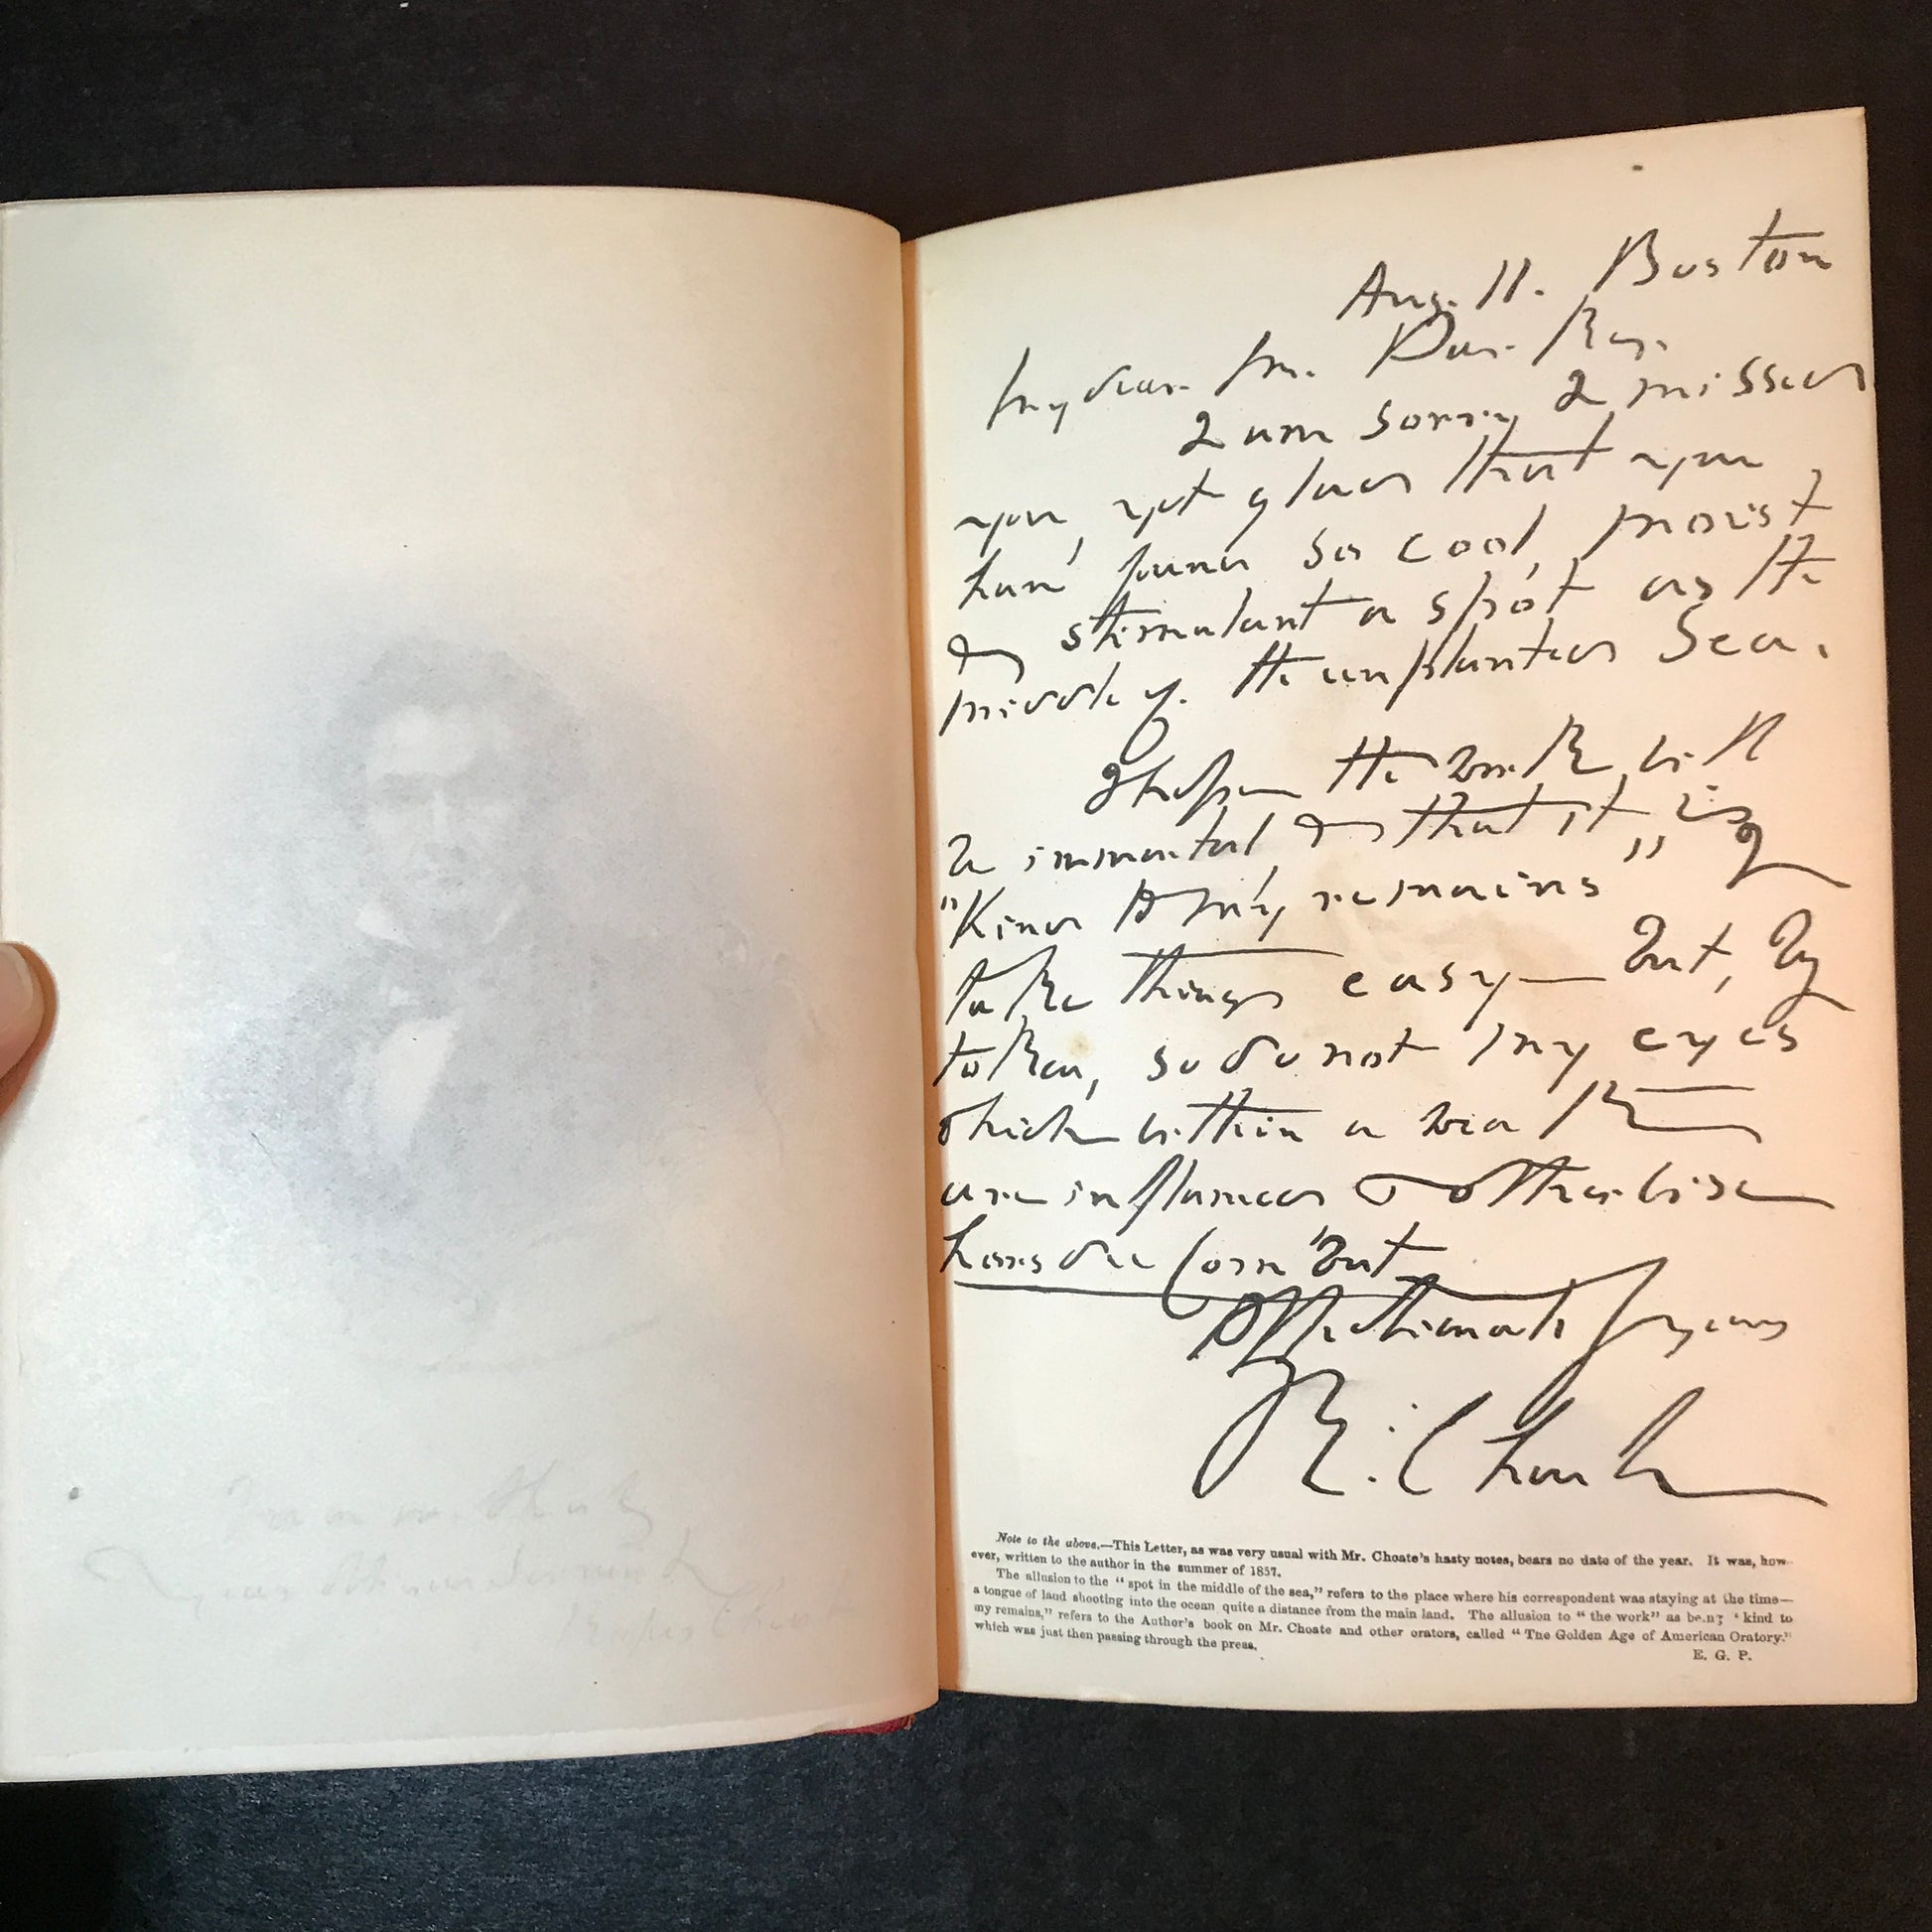 Aug. 11. Boston
My dear Mr. Parker.
I am sorry I missed
you, yet glad that you
have found so cool, moist
& stimulant a spot as the
middle of the unplanted Sea.
I hope the work will
be immortal, & that it is
"Kind to my remains"
take things easy — But, by
token, so do not my eyes
which within a week
are inflamed & otherwise
but
Affectionately yours
R. Choate
Note to the above.—This Letter, as was very usual with Mr. Choate's hasty notes, bears no date of the year. It was, how-
ever, written to the author in the summer of 1857.
The allusion to the "spot in the middle of the sea," refers to the place where his correspondent was staying at the time—
a tongue of land shooting into the ocean quite a distance from the main land. The allusion to "the work" as being 'kind to
my remains," refers to the Author's book on Mr. Choate and other orators, called "The Golden Age of American Oratory."
which was just then passing through the press.
E. G. P.